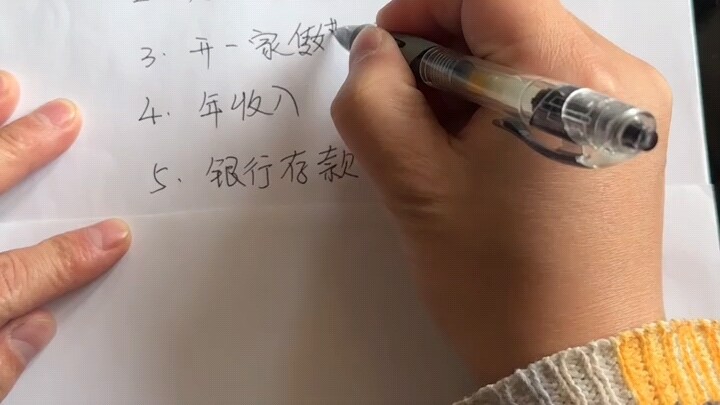 3. 开一家
4. 年收入
5. 银行存款